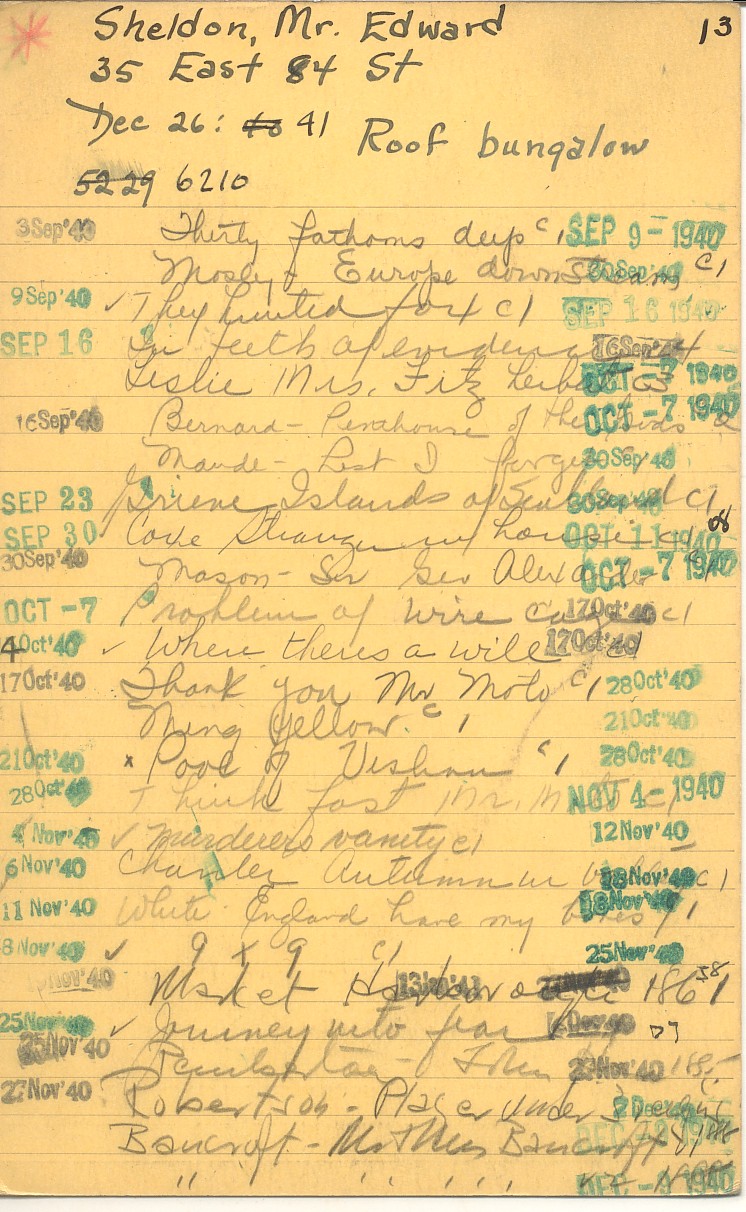 Sheldon, Mr. Edward 13
35 East 84 St
Dec 26: 40 41 Roof bungalow
5229 6210
3Sep'40 Thirty fathoms deep c1 SEP 9-1940
Mosley - Europe downstream 30Sep'40 c1
9Sep'40 ✓ They hunted fox c1 SEP 16 1940
SEP 16 In teeth of evidence 16Sep'40
Leslie Mrs. Fitz Herbert OCT -7 1940
16Sep'40 Bernard - Penthouse of the Gods OCT -7 1940
Maude - Lest I forget 30Sep'40
SEP 23 Islands of 30Sep'40 c1
SEP 30 ✓ Stranger in house c1 OCT 11 1940
30Sep'40 Mason - Sir Geo Alexander OCT -7 1940
OCT -7 Problem of wire cage 17Oct'40 c1
14Oct'40 ✓ Where theres a will 17Oct'40
17Oct'40 Thank you Mr Moto c1 28Oct'40
Ming Yellow c1 21Oct'40
21Oct'40 x Pool of Vishnu c1 28Oct'40
28Oct'40 Think fast Mr. Moto NOV 4-1940 c1
4Nov'40 ✓ Murderers vanity c1 12Nov'40
6Nov'40 Chanler Autumn in 18Nov'40 c1
11Nov'40 White England have my bones 18Nov'40
8Nov'40 ✓ 9 x 9 c1 25Nov'40
Market Harborough 1861
25Nov'40 ✓ Journey into fear
25Nov'40 Pemberton - 27Nov'40
27Nov'40 Robertson - Player under
Bancroft - Mr & Mrs Bancroft DEC
" " " " DEC -9 1940